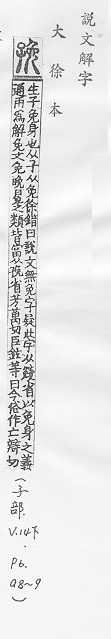 説文解字
大徐本
生子免身也从子从免徐鍇曰說文無免字疑此字从㝃省以免身之義
通用爲解免之免晚冕之類皆當从㝃省芳萬切臣鉉等曰今俗作亡辯切
(子部. V.14下. p6. a8~9)